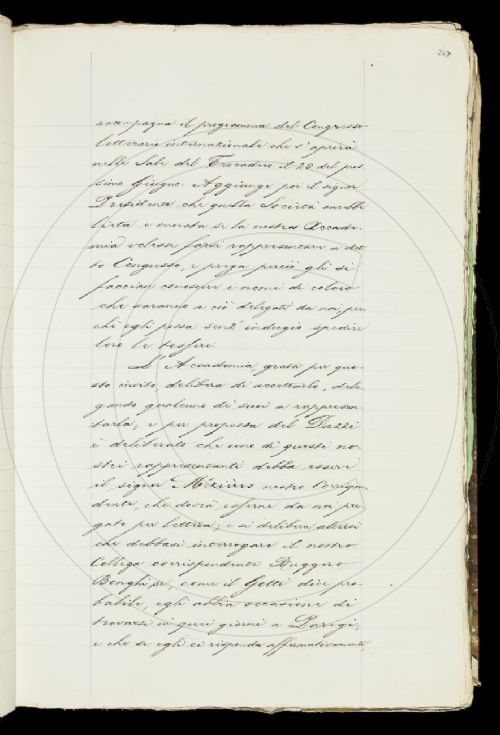 307
accompagna il programma del Congresso
letterario internazionale che s'aprirà
nelle Sale del Trocadero il 20 del pros-
simo Giugno. Aggiunge poi il signor
Presidente che quella Società sarebbe
lieta e onorata se la nostra Accade-
mia volesse farsi rappresentare a det-
to Congresso, e prega perciò gli si
facciano conoscere i nomi di coloro
che saranno a ciò delegati da noi, per-
chè egli possa senz'indugio spedire
loro le tessere.
L'Accademia, grata per que-
sto invito, delibera di accettarlo, dele-
gando qualcuno di suoi a rappresen-
tarla; e per proposta del Dazzi
è deliberato che uno di questi no-
stri rappresentanti debba essere
il signor Mézières nostro Corrispon-
dente, che dovrà esserne da noi pre-
gato per lettera; e si delibera altresì
che debbasi interrogare il nostro
Collega corrispondente Ruggero
Bonghi se, come il Gotti dice pro-
babile, egli abbia occasione di
trovarsi in quei giorni a Parigi,
e che se egli ci risponda affermativamente,